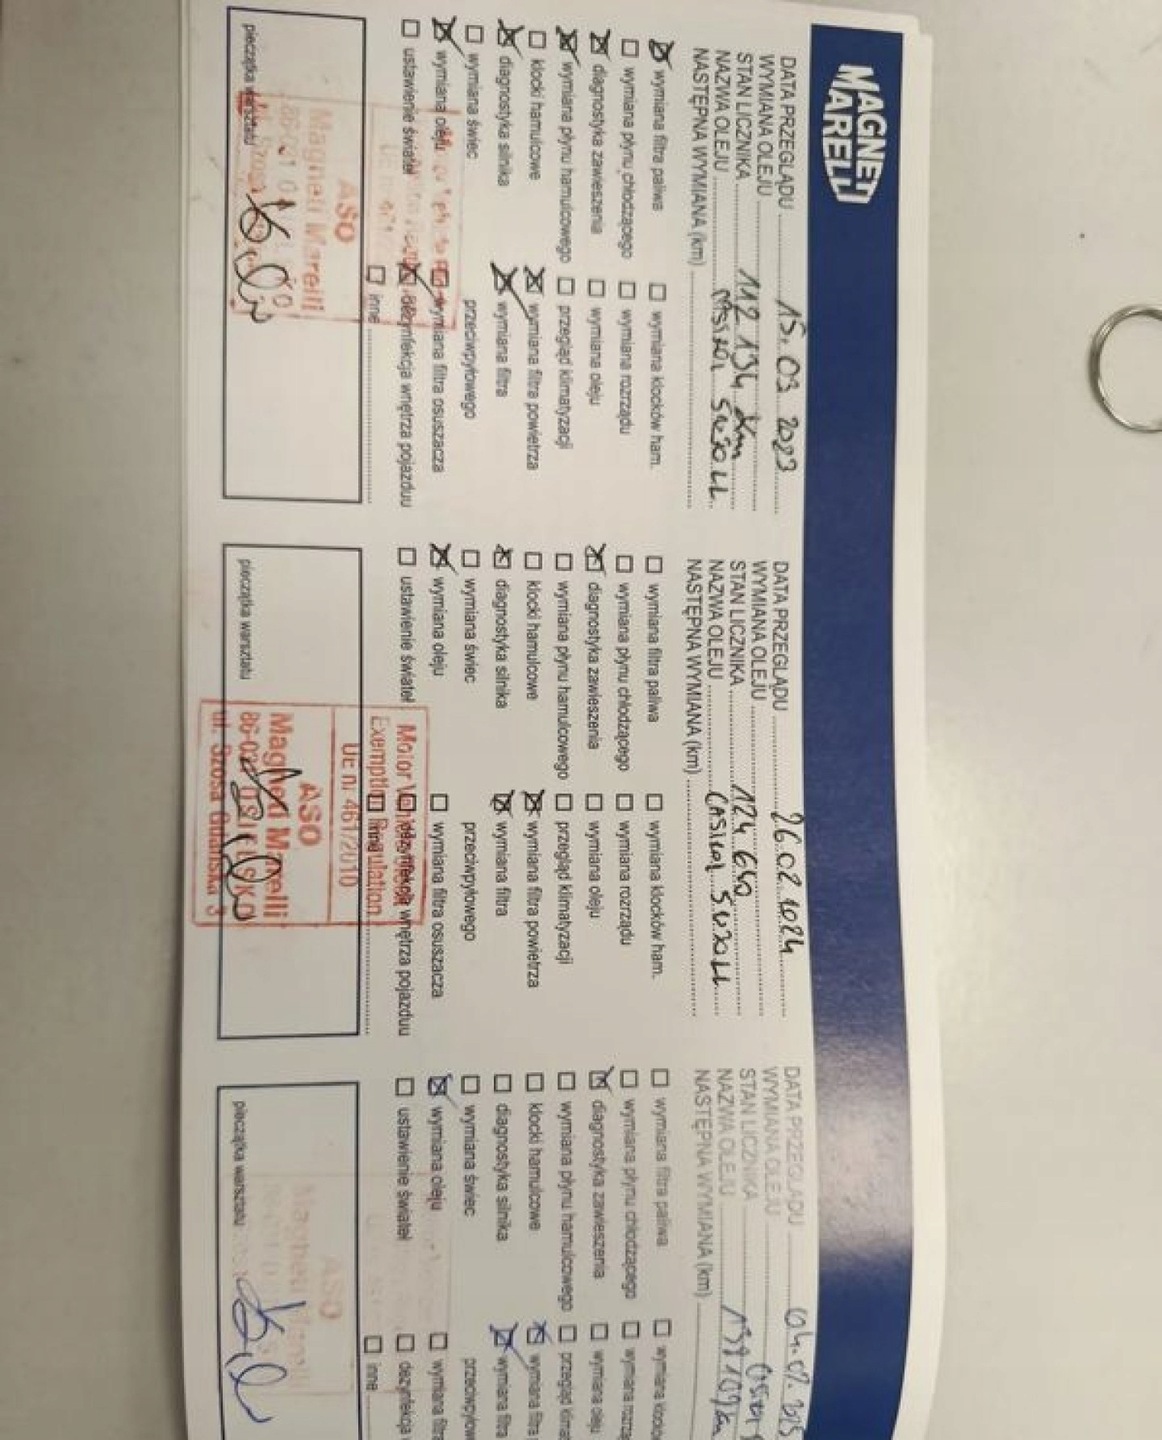 MAGNETI
MARELLI
DATA PRZEGLĄDU 15.03 2023
WYMIANA OLEJU
STAN LICZNIKA 112 134 Km
NAZWA OLEJU 5W30 LL
NASTĘPNA WYMIANA (km)
wymiana filtra paliwa wymiana klocków ham.
wymiana płynu chłodzącego wymiana rozrządu
diagnostyka zawieszenia wymiana oleju
wymiana płynu hamulcowego przegląd klimatyzacji
klocki hamulcowe wymiana filtra powietrza
diagnostyka silnika wymiana filtra
wymiana świec przeciwpyłowego
wymiana oleju wymiana filtra osuszacza
ustawienie świateł dezynfekcja wnętrza pojazduu
inne
ASO
Magneti Marelli
pieczątka warsztatu
DATA PRZEGLĄDU 26.02.2024
WYMIANA OLEJU
STAN LICZNIKA 124 650
NAZWA OLEJU 5W30 LL
NASTĘPNA WYMIANA (km)
wymiana filtra paliwa wymiana klocków ham.
wymiana płynu chłodzącego wymiana rozrządu
diagnostyka zawieszenia wymiana oleju
wymiana płynu hamulcowego przegląd klimatyzacji
klocki hamulcowe wymiana filtra powietrza
diagnostyka silnika wymiana filtra
wymiana świec przeciwpyłowego
wymiana oleju wymiana filtra osuszacza
ustawienie świateł dezynfekcja wnętrza pojazduu
inne
Exemption Regulation
UE nr 461/2010
ASO
Magneti Marelli
ul. Szosa Gdańska 3
pieczątka warsztatu
DATA PRZEGLĄDU
WYMIANA OLEJU
STAN LICZNIKA
NAZWA OLEJU
NASTĘPNA WYMIANA (km)
wymiana filtra paliwa wymiana klocków
wymiana płynu chłodzącego wymiana rozrzą
diagnostyka zawieszenia wymiana oleju
wymiana płynu hamulcowego przegląd klimat
klocki hamulcowe wymiana filtra
diagnostyka silnika wymiana filtra
wymiana świec przeciwpyłow
wymiana oleju wymiana filtra
ustawienie świateł dezynfekcja
inne
ASO
Magneti Marelli
pieczątka warsztatu